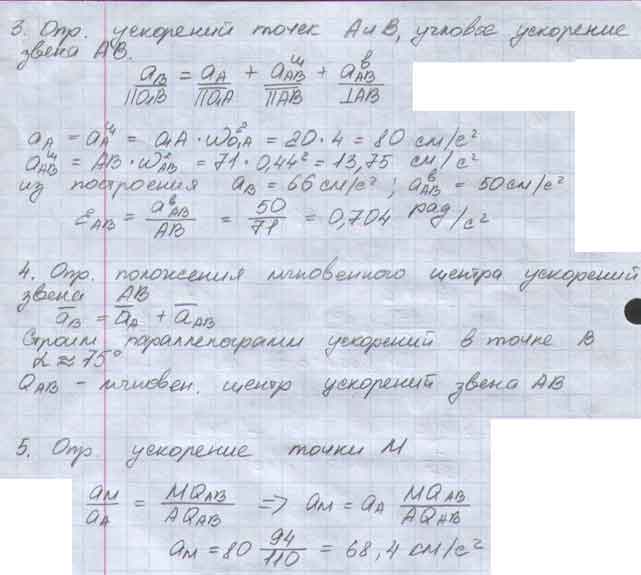 3. Опр. ускорений точек А и В, угловое ускорение
звена АВ.
a̅_B / ||O₁B = a̅_A / ||O₁A + a̅_AB^ц / ||AB + a̅_AB^в / ⊥AB
a_A = a_A^ц = O₁A · ω²_O₁A = 20 · 4 = 80 см/с²
a_AB^ц = AB · ω²_AB = 71 · 0,44² = 13,75 см/с²
из построения a_B = 66 см/с²; a_AB^в = 50 см/с²
ε_AB = a_AB^в / AB = 50/71 = 0,704 рад/с²
4. Опр. положения мгновенного центра ускорений
звена АВ
a̅_B = a̅_A + a̅_AB
Строим параллелограмм ускорений в точке В
α ≈ 75°
Q_AB - мгновен. центр ускорений звена АВ
5. Опр. ускорение точки М
a_M / a_A = MQ_AB / AQ_AB => a_M = a_A MQ_AB / AQ_AB
a_M = 80 94/110 = 68,4 см/с²